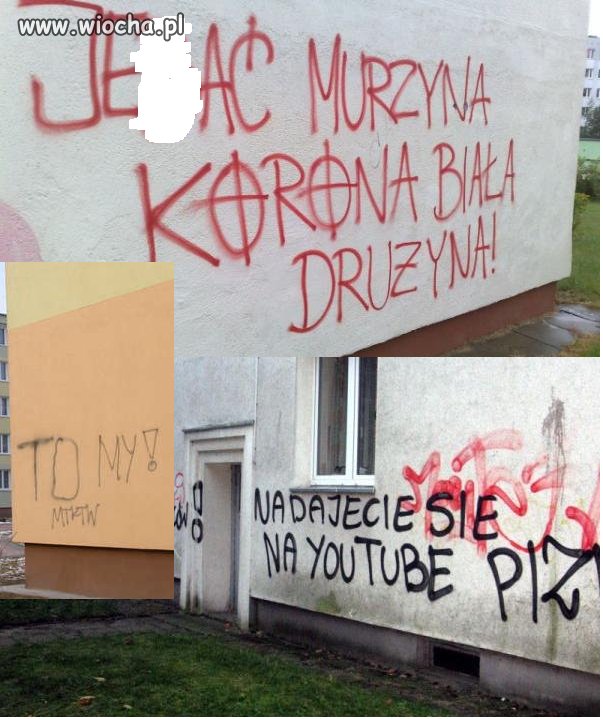 www.wiocha.pl
JE AĆ MURZYNA
KORONA BIAŁA
DRUZYNA!
TO MY!
MTKTW
NADAJECIE SIE
NA YOUTUBE PIZ